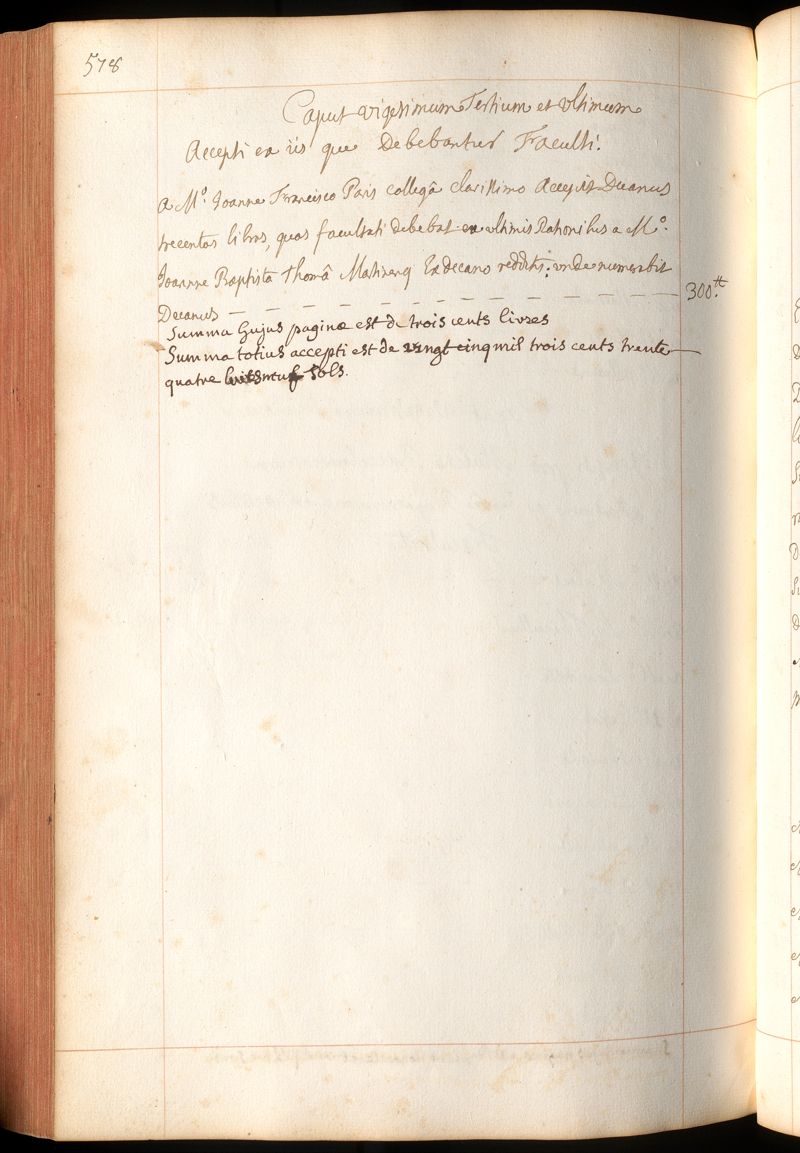 578
Caput vigesimum Tertium et ultimum
Accepti ex iis que Debebantur Faculti.
A M.o Joanne Francisco Paris collegâ clarissimo Accepit Decanus
trecentas libras, quas facultati debebat ex ultimis Rationibus a M.o
Joanne Baptista Thomâ Martinenq Exdecano redditis; unde numerabit
Decanus — — — — — — — — — — 300.tt
Summa hujus paginæ est de trois cents livres
Summa totius accepti est de vingt cinq mil trois cents trente
quatre sols.